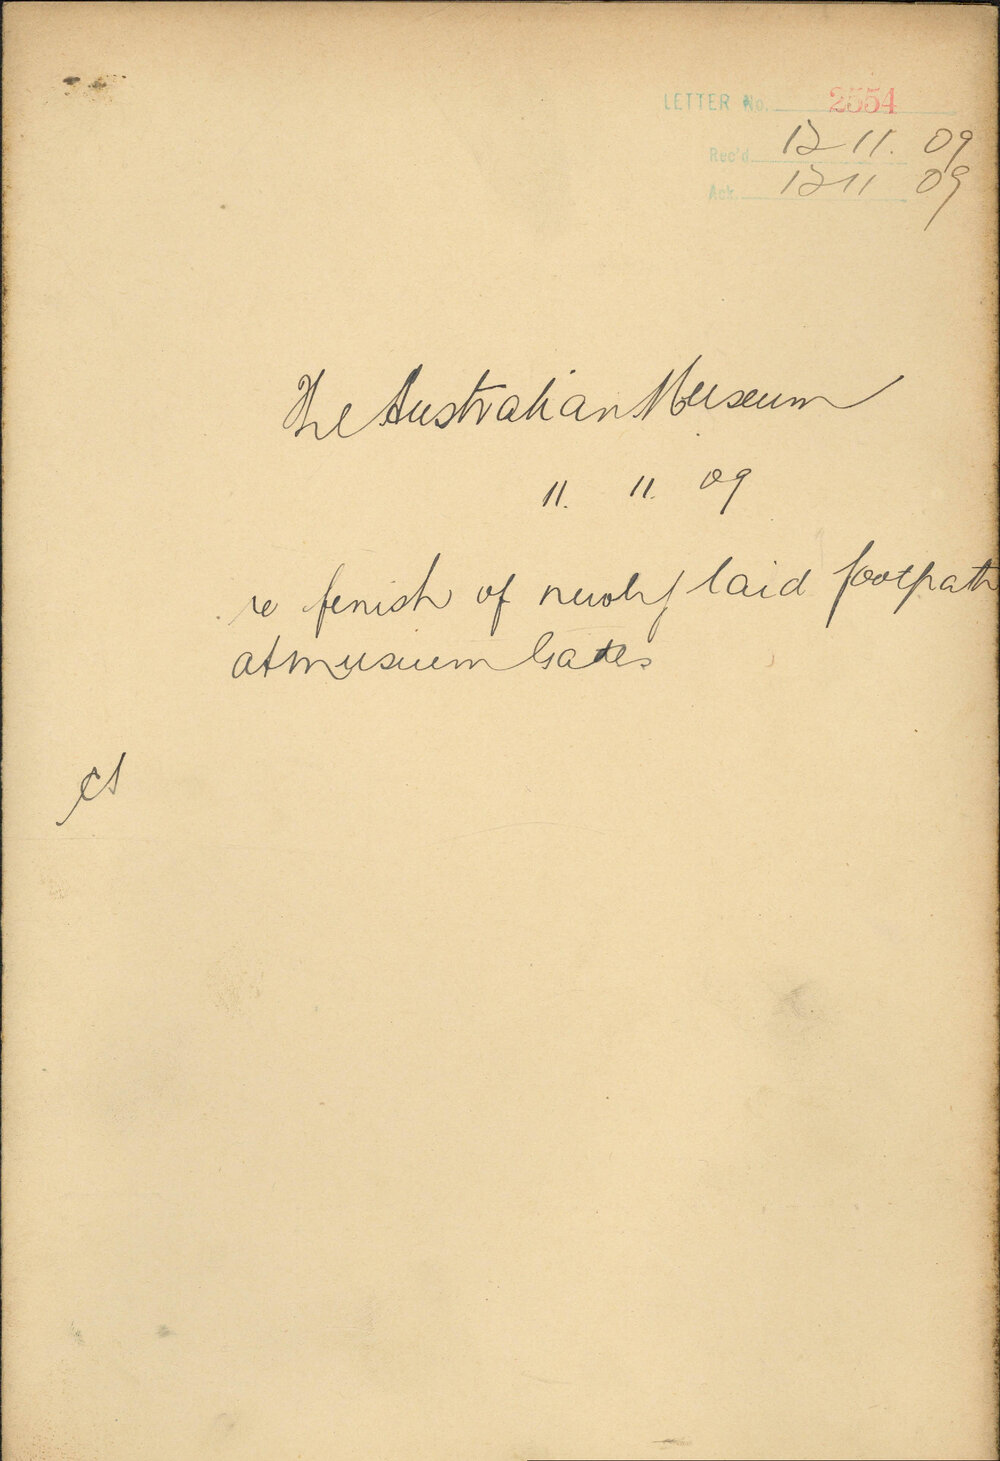 LETTER No. 2554
Rec'd 12 11. 09
Ack. 12 11 09
The Australian Museum
11. 11. 09
re finish of newly laid footpath
at museum Gates